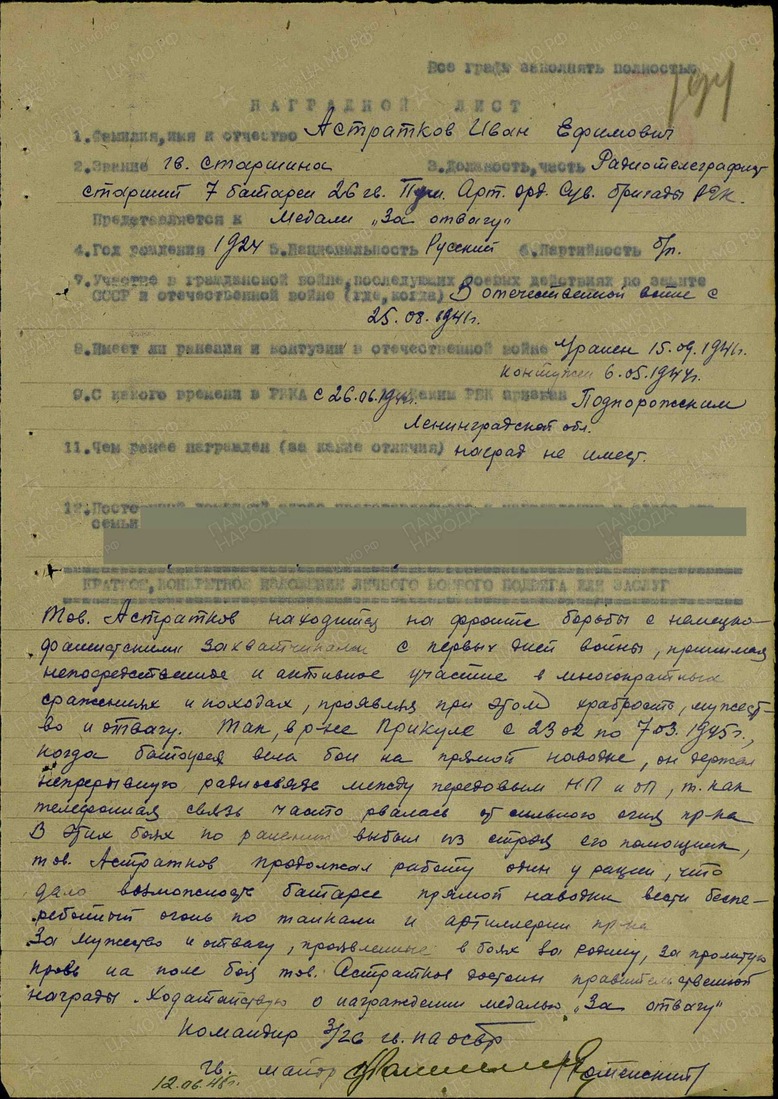 Все графы заполнять полностью
194
НАГРАДНОЙ ЛИСТ
1.Фамилия,имя и отчество Астратков Иван Ефимович
2.Звание гв. старшина 3.Должность,часть Радиотелеграфист
старший 7 батареи 26 гв. Арт. орд. Сув. бригады РГК.
Представляется к Медали „За отвагу"
4.Год рождения 1924 5.Национальность Русский 6.Партийность б/п.
7.Участие в гражданской войне,последующих боевых действиях по защите
СССР и отечественной войне (где,когда) В отечественной войне с
25.08.1941г.
8.Имеет ли ранения и контузии в отечественной войне Уранен 15.09.1941г.
контужен 6.05.1944г.
9.С какого времени в РККА с 26.06.1941г. Каким РВК призван Подпорожским
Ленинградской обл.
11.Чем ранее награжден (за какие отличия) наград не имеет.
12.
семьи
КРАТКОЕ,КОНКРЕТНОЕ ИЗЛОЖЕНИЕ ЛИЧНОГО БОЕВОГО ПОДВИГА ИЛИ ЗАСЛУГ
Тов. Астратков находится на фронте борьбы с немецко-
фашистскими захватчиками с первых дней войны, принимая
непосредственное и активное участие в многократных
сражениях и походах, проявляя при этом храбрость, мужест-
во и отвагу. Так, в р-не Прикуле с 23 02 по 7 03. 1945г.,
когда батарея вела бои на прямой наводке, он держал
непрерывную радиосвязь между передовым НП и ОП, т. как
телефонная связь часто рвалась от сильного огня пр-ка
В этих боях по ранению выбыл из строя его помощник,
тов. Астратков продолжал работу один у рации, что
дало возможность батарее прямой наводки вести беспе-
ребойный огонь по танкам и артиллерии пр-ка
За мужество и отвагу, проявленные в боях за родину, за пролитую
кровь на поле боя тов. Астратков достоин правительственной
награды. Ходатайствую о награждении медалью „За отвагу"
Командир 3/26 гв. ПАОСБР
гв. майор
12.06.45г.